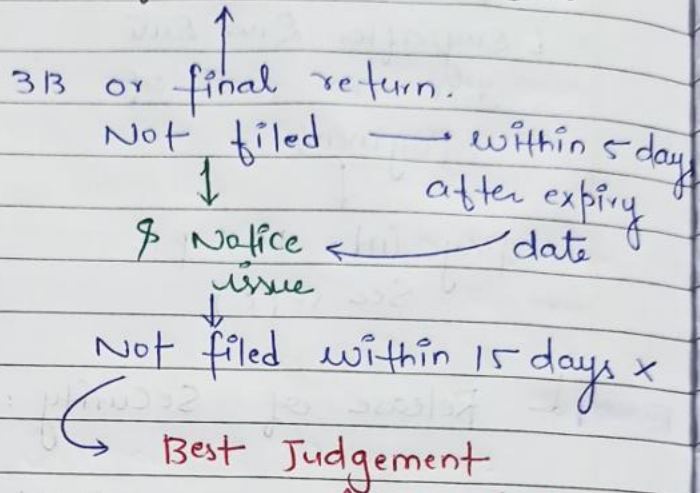 3B or final return.
Not filed → within 5 days
after expiry
date
$ Notice ←
issue
Not filed within 15 days ×
Best Judgement